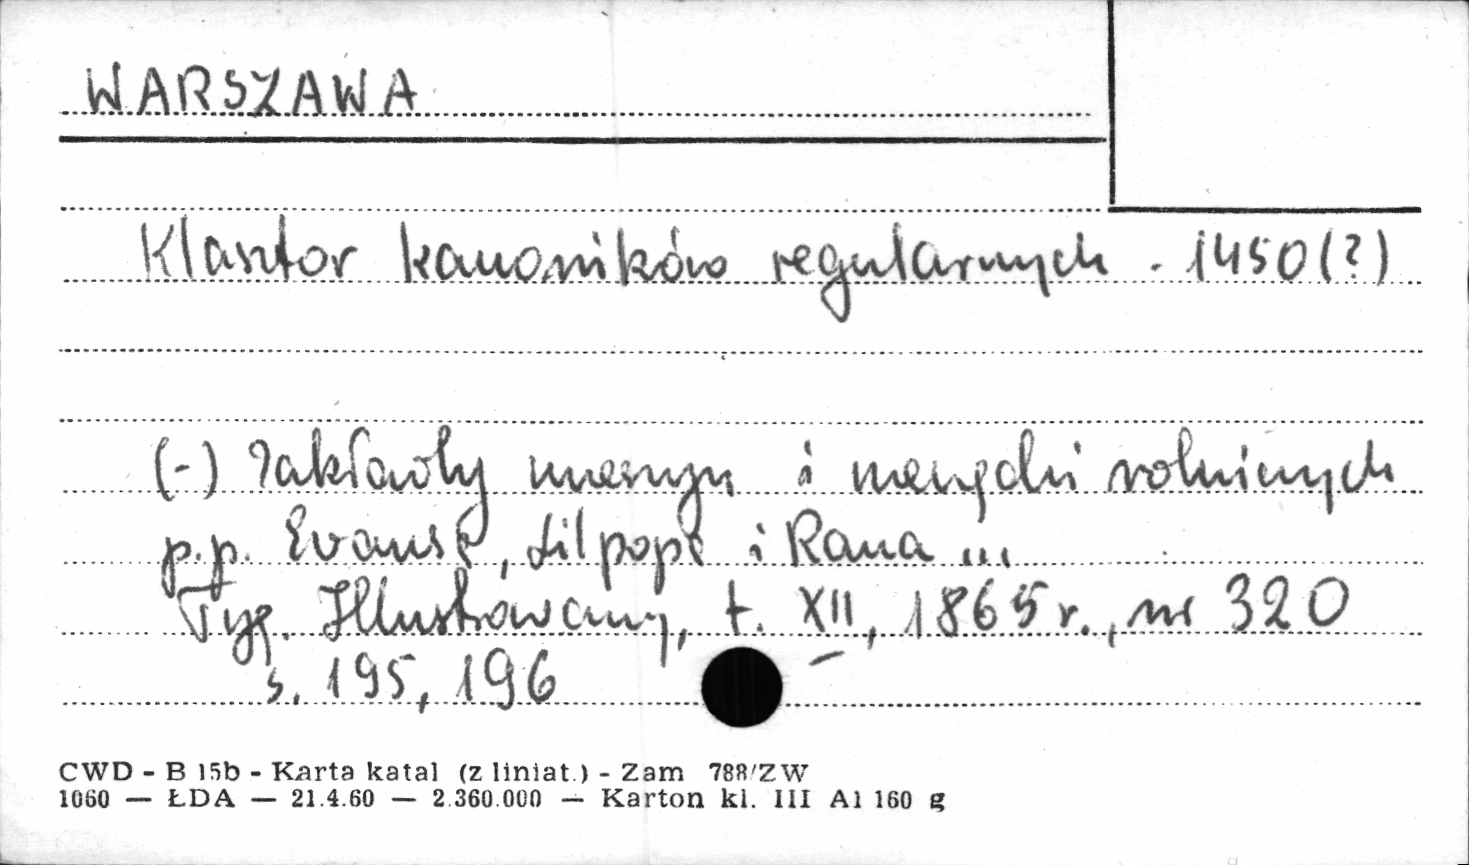 WARSZAWA
Klasztor kanoników regularnych . 1450(?)
(-) Zakłady maszyn i narzędzi rolniczych
p.p. Evansa, Lilpopa i Raua ...
Tyg. Illustrowany, t. XII, 1865 r., nr 320
s. 195, 196
CWD - B 15b - Karta katal (z liniat.) - Zam 788/ZW
1060 — ŁDA — 21.4.60 — 2.360.000 — Karton kl. III A1 160 g